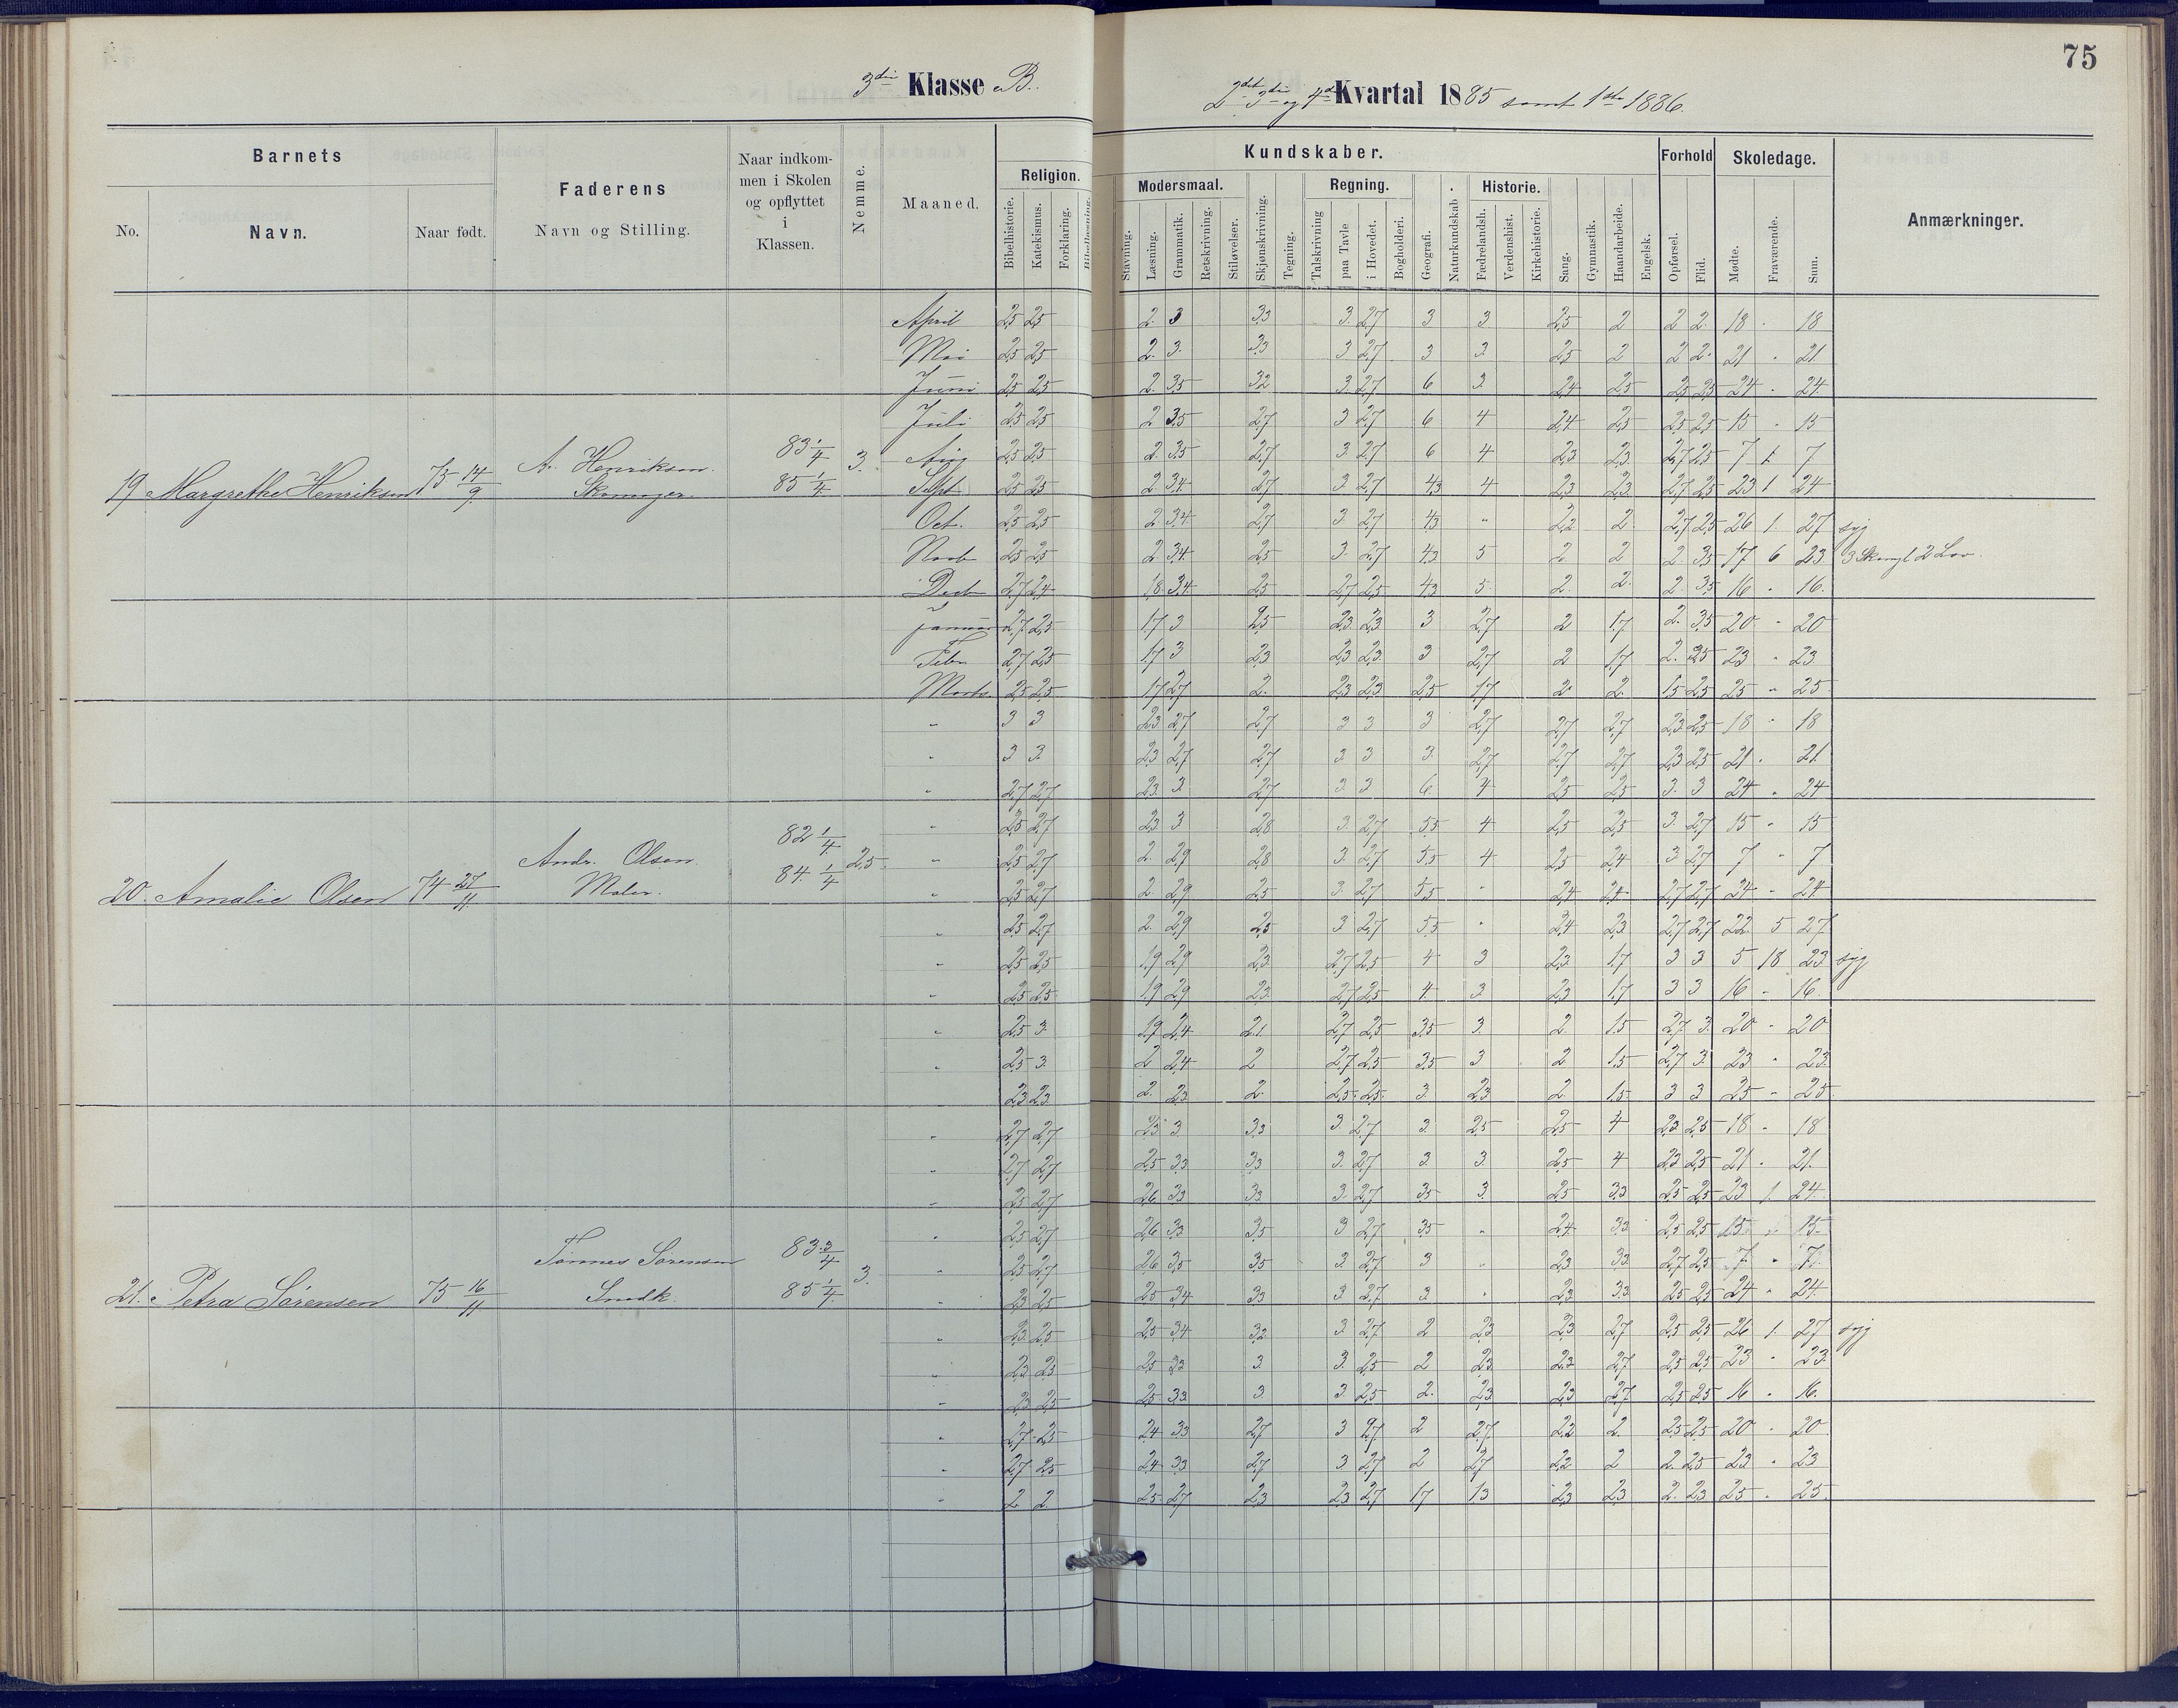 75
3die Klasse B.
2det 3die og 4de Kvartal 1885 samt 1ste 1886.
Barnets
Faderens
Naar indkommen i Skolen og opflyttet i Klassen.
Nemme.
Maaned.
Religion.
Kundskaber.
Forhold
Skoledage.
Anmærkninger.
No.
Navn.
Naar født.
Navn og Stilling.
Modersmaal.
Regning.
Historie.
Bibelhistorie.
Katekismus.
Forklaring.
Bibellæsning.
Stavning.
Læsning.
Grammatik.
Retskrivning.
Stiløvelser.
Skjønskrivning.
Tegning.
Talskrivning
paa Tavle
i Hovedet.
Bogholderi.
Geografi.
Naturkundskab
Fædrelandsh.
Verdenshist.
Kirkehistorie.
Sang.
Gymnastik.
Haandarbeide.
Engelsk.
Opførsel.
Flid.
Mødte.
Fraværende.
Sum.
April 2,5 2,5 2. 3 3,3 3. 2,7 3 3 2,5 2 2 2. 18 " 18
Mai 2,5 2,5 2. 3. 3,3 3 2,7 3 3. 2,5 2 2 2. 21 " 21
Juni 2,5 2,5 2. 3,5 3,2 3. 2,7 6 3 2,4 2,5 2,5 2,5 24 " 24.
Juli 2,5 2,5 2 3,5 2,7 3 2,7 6 4 2,4 2,5 2,5 2,5 15 " 15
Aug 2,5 2,5 2. 3,5 2,7 3 2,7 6 4 2,3 2,3. 2,7 2,5 7 1. 7
19 Margrethe Henriksen 75 14/9 A. Henriksen. Skomager. 83 1/4 85 1/4 3.
Sept 2,5 2,5 2 3,4 2,7 3 2,7 4,3 4 2,3 2,3. 2,7 2,5 23 1 24
Oct. 2,5 2,5 2 3,4 2,7 3 2,7 4,3 " 2,2 2 2,7 2,5 26 1. 27 syg
Novb 2,5 2,5 2 3,4 2,5 3 2,7 4,3 5 2 2 2. 3,5 17 6 23
Decb 2,7 2,4 1,8 3,4 2,5 2,7 2,5 4,3 5. 2. 2. 2 3,5 16 " 16.
Januar 2,7 2,5 1,7 3 2,5 2,3 2,3 3 2,7 2 1,7 2. 3,5 20 " 20
Febr 2,7 2,5 1,7 3 2,3 2,3 2,3 3 2,7 2 1,7 2. 2,5 23 " 23
Marts. 2,5 2,5 1,7 2,7 2. 2,3 2,3 2,5 1,7 2 2. 1,5 2,5 25 " 25
" 3 3 2,3 2,7 2,7 3 3 3 2,7 2,7 2,7 2,3 2,5 18 " 18
" 3 3. 2,3 2,7 2,7 3 3 3. 2,7 2,7 2,7 2,3 2,5 21 " 21.
" 2,7 2,7 2,3 3. 2,7 3 3 6. 4 2,5 2,5 3. 3 24 " 24
" 2,5 2,7 2,3 3 2,8 3. 2,7 5,5 4 2,5 2,5 3. 2,7 15 " 15
" 2,5 2,7 2. 2,9 2,8 3. 2,7 5,5 4 2,5 2,4 3 2,7 7 " 7
20. Amalie Olsen 74 27/11. Andr. Olsen. Maler. 82 1/4 84. 1/4 2,5
" 2,5 2,7 2. 2,9 2,5 3. 2,7 5,5 " 2,4 2,4 2,7 2,7 24 " 24
" 2,5 2,7 2. 2,9 2,5 3 2,7 5,5 " 2,4 2,3 2,7 2,7 22. 5 27
" 2,5 2,5 1,9 2,9 2,3 2,7 2,5 4 3 2,3 1,7 3 3 5 18 23 syg
" 2,5 2,5 1,9 2,9 2,3 2,7 2,5 4. 3. 2,3 1,7 3 3 16 " 16.
" 2,5 3. 1,9 2,4 2,1 2,7 2,5 3,5 3. 2. 1,5 2,7 3. 20 " 20
" 2,5 3. 2 2,4 2 2,7 2,5 3,5 3 2 1,5 2,7 3. 23 " 23
" 2,3 2,3 2. 2,3 2. 2,5 2,5 3 2,3 2. 1,5 3 3 25 " 25.
" 2,7 2,7 2,3 3. 3,3 3. 2,7 3. 2,5 2,5 4 2,3 2,5 18 " 18
" 2,7 2,7 2,5 3,3 3,3 3. 2,7 3 3. 2,5 4 2,3 2,5 21 " 21.
" 2,5 2,7 2,6 3,3 3,3 3 2,7 3,5 3. 2,5 3,3 2,5 2,5 23 1. 24
" 2,5 2,7 2,6 3,3 3,5 3 2,7 3,5 " 2,4 3,3 2,5 2,5 15 " 15
" 2,5 2,7 2,6 3,5 3,5 3 2,7 3 " 2,3 3,3 2,7 2,5 7 " 7.
21. Petra Sørensen 75 16/11 Tønnes Sørensen Snedk. 83 3/4 85 1/4 3.
" 2,3 2,5 2,5 3,4 3,3 3 2,7 3 " 2,3 3,3 2,5 2,5 24 " 24
" 2,3 2,5 2,5 3,4 3,2 3. 2,7 2 2,3 2,3 2,7 2,5 2,5 26 1. 27 syg
" 2,3 2,5 2,5 3,3 3. 3. 2,5 2 2,3 2,3 2,7 2,5 2,5 23 " 23
" 2,3 2,5 2,5 3,3 3 3 2,5 2. 2,3 2,3 2,7 2,5 2,5 16 " 16.
" 2,7 2,5 2,4 3,3 2,7 3 2,7 2 2,7 2,2 2. 2,5 2,5 20 " 20
" 2,7 2,5 2,4 3,3 2,7 3 2,7 2 2,7 2,2 2 2. 2,5 23 " 23
" 2. 2. 2,5 2,7 2,3 2,3 2,7 1,7 1,3 2,3 2,3 2. 2,3 25 " 25.